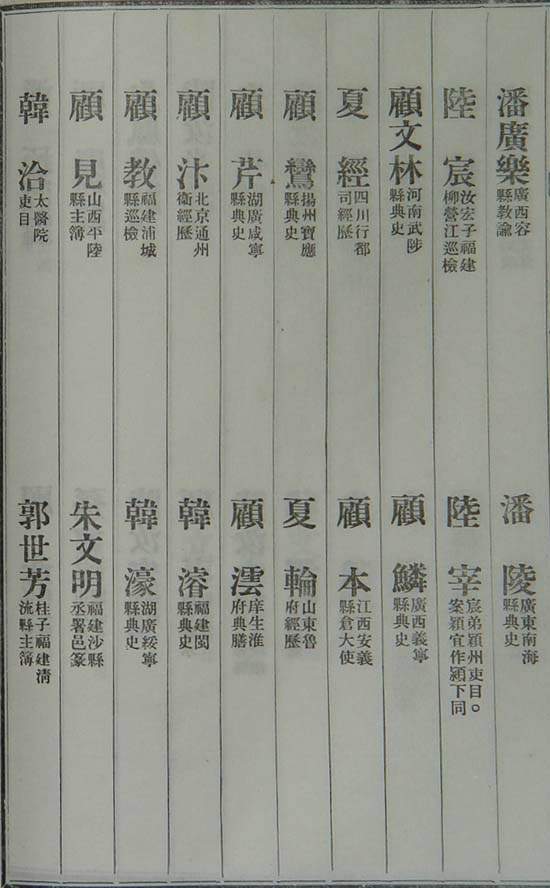 潘廣樂 廣西容縣教諭 潘陵 廣東南海縣典史
陸宸 汝宏子福建柳營江巡檢 陸宰 宸弟潁州吏目。案穎宜作潁下同
顧文林 河南武陟縣典史 顧鱗 廣西義寧縣典史
夏經 四川行都司經歷 顧本 江西安義縣倉大使
顧鸞 揚州寶應縣典史 夏輪 山東魯府經歷
顧芹 湖廣咸寧縣典史 顧澐 庠生淮府典膳
顧汴 北京通州衛經歷 韓濬 福建閩縣典史
顧教 福建浦城縣巡檢 韓濠 湖廣綏寧縣典史
顧見 山西平陸縣主簿 朱文明 福建沙縣丞署邑篆
韓洽 太醫院吏目 郭世芳 桂子福建清流縣主簿